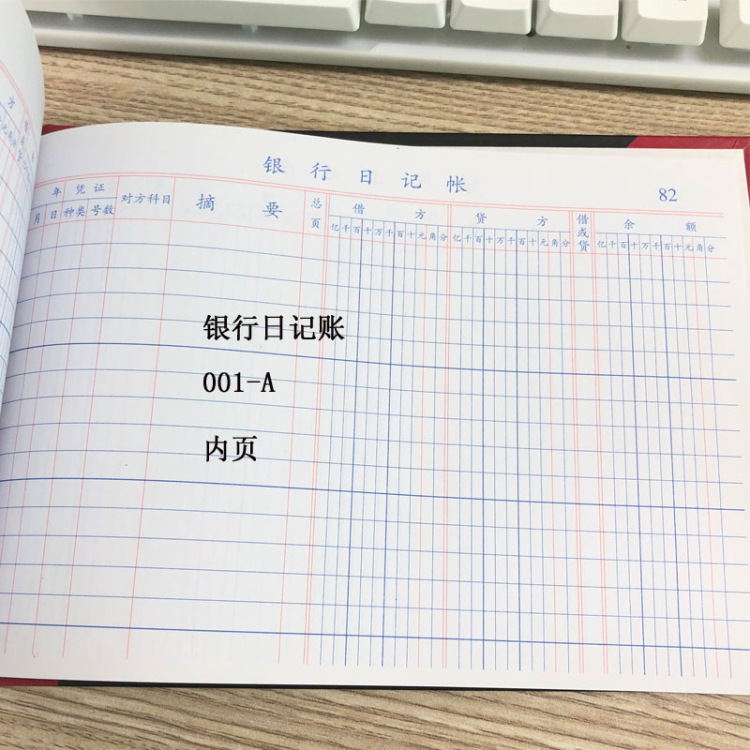 银行日记帐
82
年 凭证 对方科目 摘要 总页 借方 贷方 借或贷 余额
月 日 种类 号数 亿千百十万千百十元角分 亿千百十万千百十元角分 亿千百十万千百十元角分
银行日记账
001-A
内页